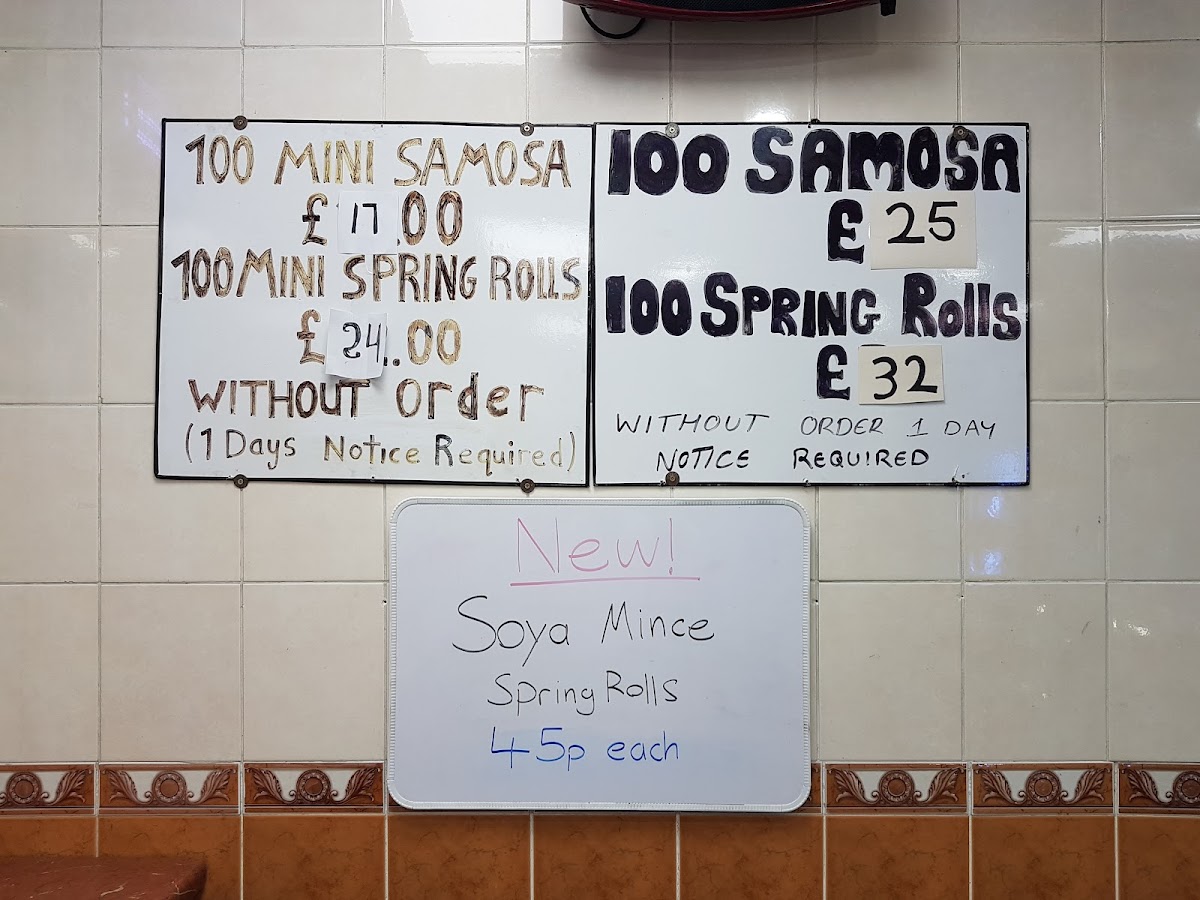 100 MINI SAMOSA
£ 17.00
100 MINI SPRING ROLLS
£ 24..00
WITHOUT Order
(1 Days Notice Required)
100 SAMOSA
£ 25
100 SPRING Rolls
£ 32
WITHOUT ORDER 1 DAY
NOTICE REQUIRED
New!
Soya Mince
Spring Rolls
45p each